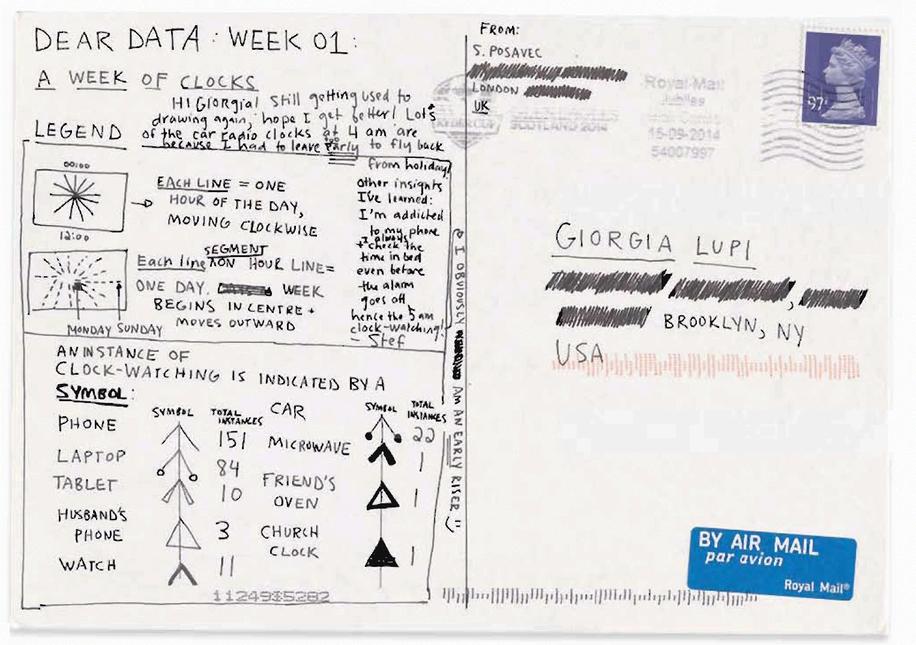 DEAR DATA : WEEK 01:
A WEEK OF CLOCKS
HI GIORGIA! Still getting used to
drawing again, hope I get better! Lots
of the car radio clocks at 4 am are
because I had to leave too early to fly back
from holiday!
LEGEND
00:00
12:00
EACH LINE = ONE
HOUR OF THE DAY,
MOVING CLOCKWISE
Each line SEGMENT ON HOUR LINE=
ONE DAY. WEEK
BEGINS IN CENTRE +
MOVES OUTWARD
MONDAY SUNDAY
other insights
I've learned:
I'm addicted
to my phone
+ always check the
time in bed
even before
the alarm
goes off,
hence the 5 am
clock-watching!
- Stef
I OBVIOUSLY AM AN EARLY RISER
AN INSTANCE OF
CLOCK-WATCHING IS INDICATED BY A
SYMBOL:
SYMBOL TOTAL INSTANCES
PHONE 151
LAPTOP 84
TABLET 10
HUSBAND'S
PHONE 3
WATCH 11
SYMBOL TOTAL INSTANCES
CAR 22
MICROWAVE 1
FRIEND'S
OVEN 1
CHURCH
CLOCK 1
FROM:
S. POSAVEC
LONDON
UK
SCOTLAND 2014
Royal Mail
Jubilee
15-09-2014
54007997
97
GIORGIA LUPI
BROOKLYN, NY
USA
BY AIR MAIL
par avion
Royal Mail®